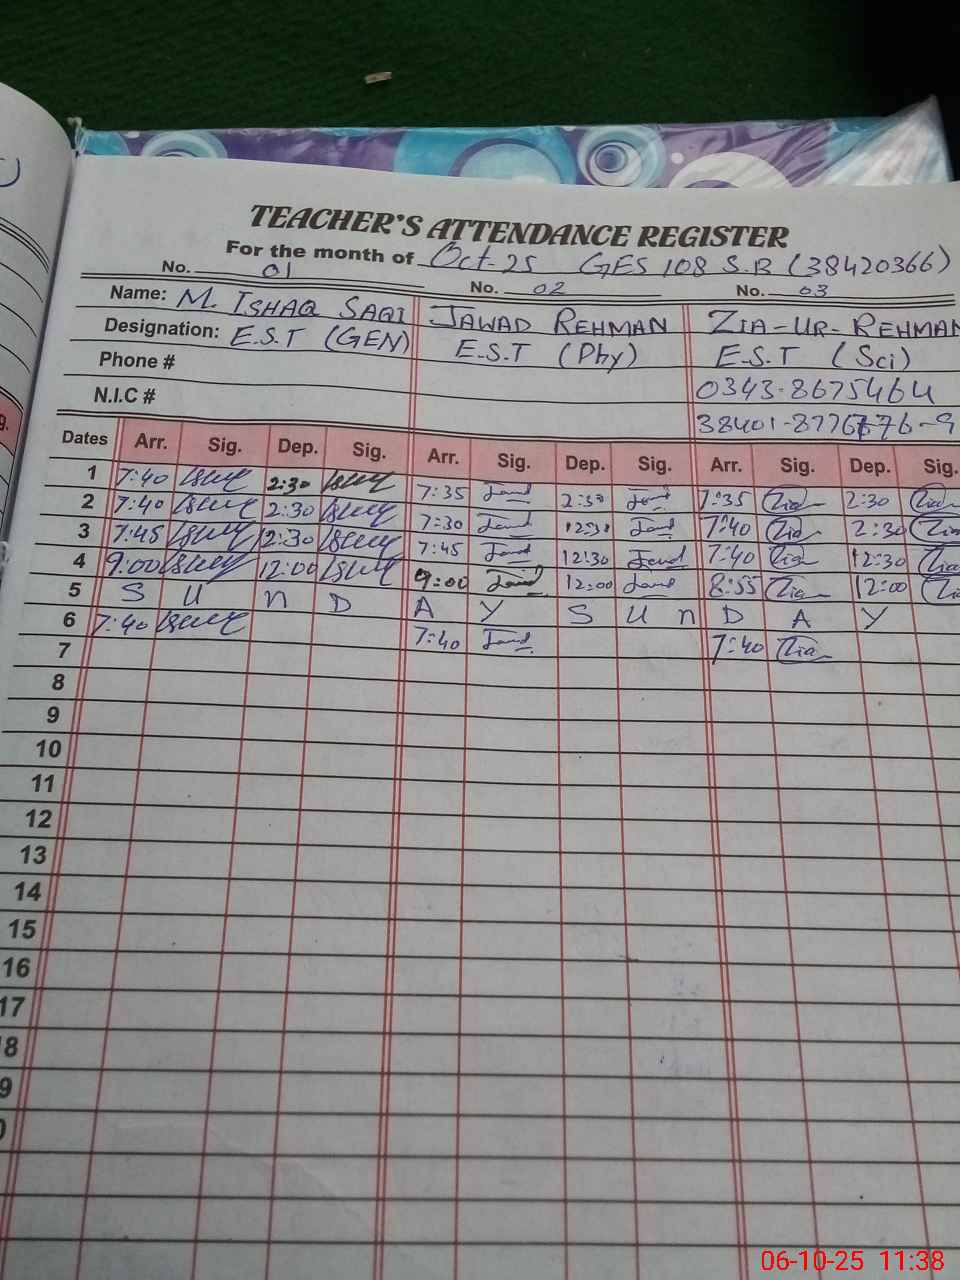 TEACHER'S ATTENDANCE REGISTER
For the month of Oct-25 GES 108 S.B (38420366)
No. 01 No. 02 No. 03
Name: M. ISHAQ SAQI JAWAD REHMAN ZIA-UR-REHMAN
Designation: E.S.T (GEN) E.S.T (Phy) E.S.T (Sci)
Phone # 0343-8675464
N.I.C #
Dates Arr. Sig. Dep. Sig. Arr. Sig. Dep. Sig. Arr. Sig. Dep. Sig.
1 7:40 2:30 7:35 2:30 7:35 Zia 2:30 Zia
2 7:40 2:30 7:30 12:30 7:40 Zia 2:30 Zia
3 7:45 12:30 7:45 12:30 7:40 Zia 12:30 Zia
4 9:00 12:00 9:00 12:00 8:55 Zia 12:00 Zia
5 S U n D A Y S U n D A Y
6 7:40 7:40 7:40 Zia
7
8
9
10
11
12
13
14
15
16
17
8
9
06-10-25 11:38